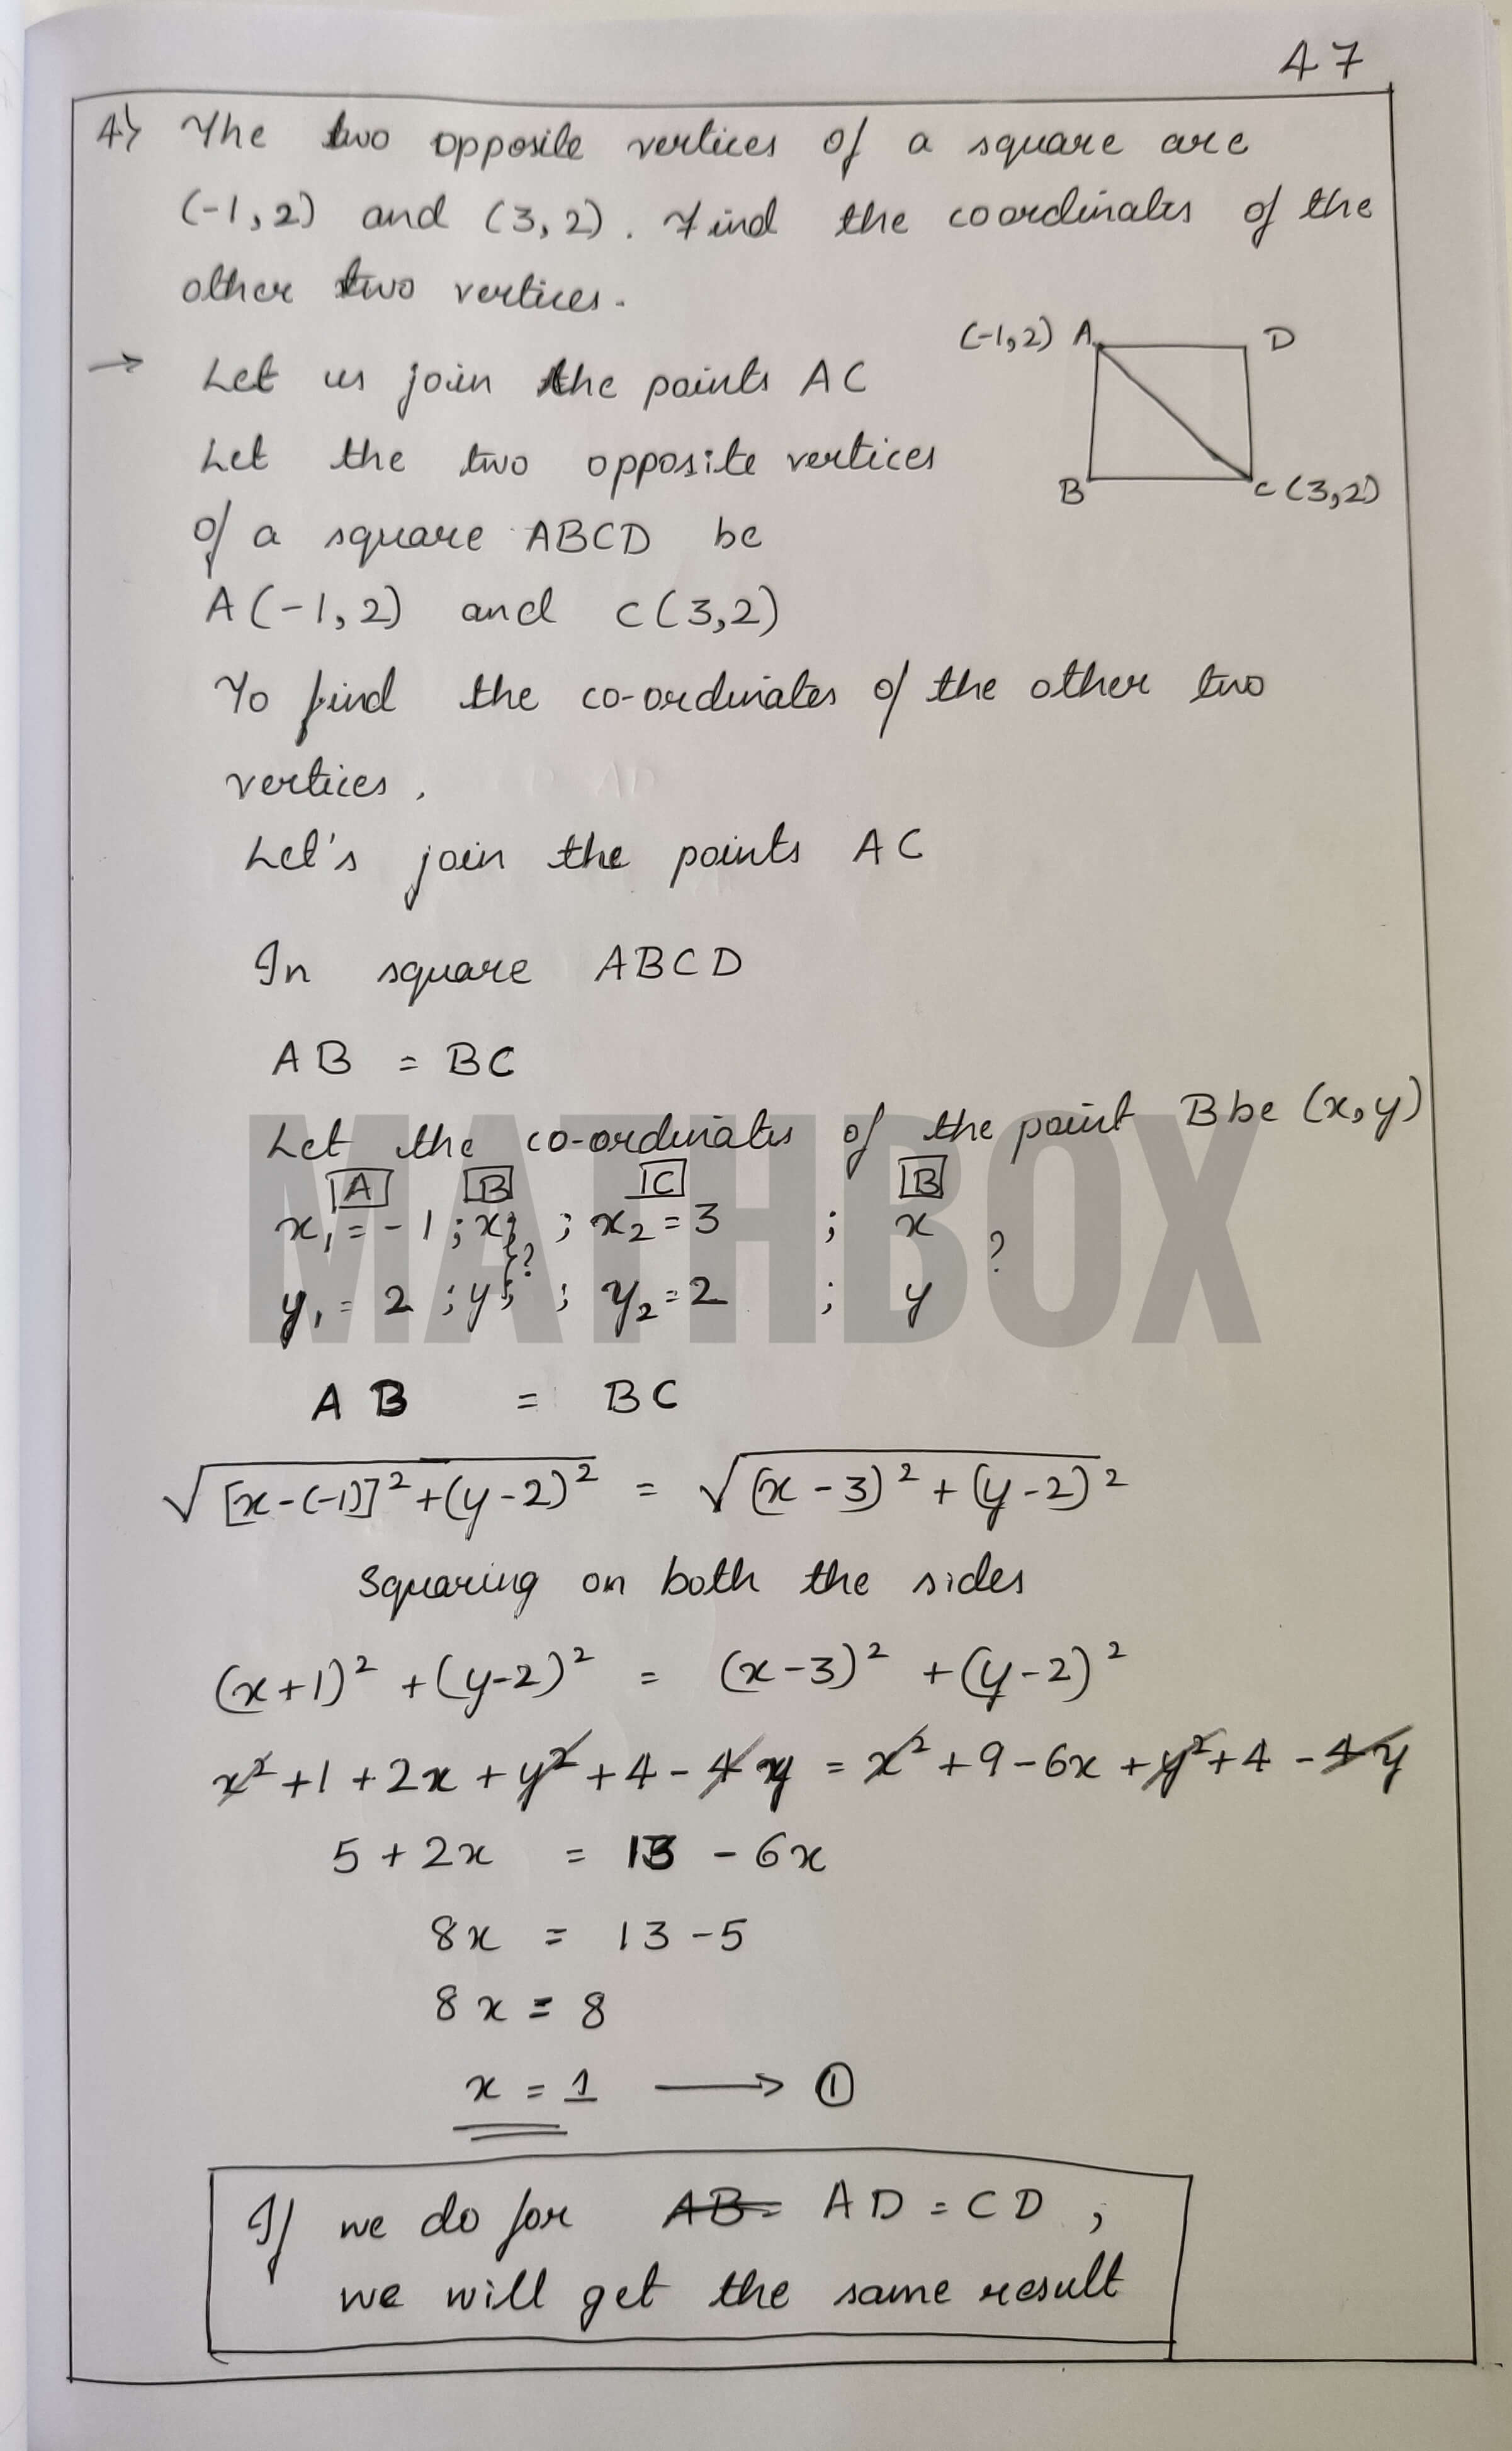 47
4) The two opposite vertices of a square are
(-1,2) and (3,2). Find the coordinates of the
other two vertices.
(-1,2) A D
→ Let us join the points AC
Let the two opposite vertices
B C (3,2)
of a square ABCD be
A(-1,2) and C(3,2)
To find the co-ordinates of the other two
vertices,
Let's join the points AC
In square ABCD
AB = BC
Let the co-ordinates of the point B be (x,y)
A B C B
x₁ = -1 ; x } ; x₂ = 3 ; x
? ?
y₁ = 2 ; y } ; y₂ = 2 ; y
MATHBOX
AB = BC
√[x-(-1)]² + (y-2)² = √(x-3)² + (y-2)²
Squaring on both the sides
(x+1)² + (y-2)² = (x-3)² + (y-2)²
x² + 1 + 2x + y² + 4 - 4y = x² + 9 - 6x + y² + 4 - 4y
5 + 2x = 13 - 6x
8x = 13 - 5
8x = 8
x = 1 → ①
If we do for AB= AD = CD ,
we will get the same result